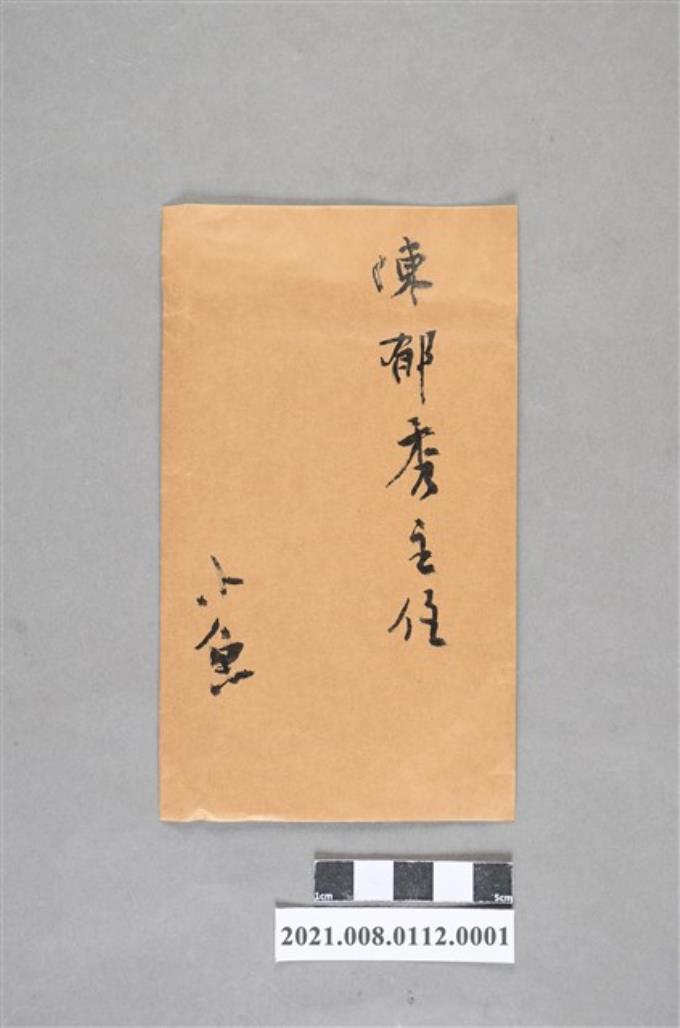 陳郁秀主任
小魚
1cm
5cm
2021.008.0112.0001